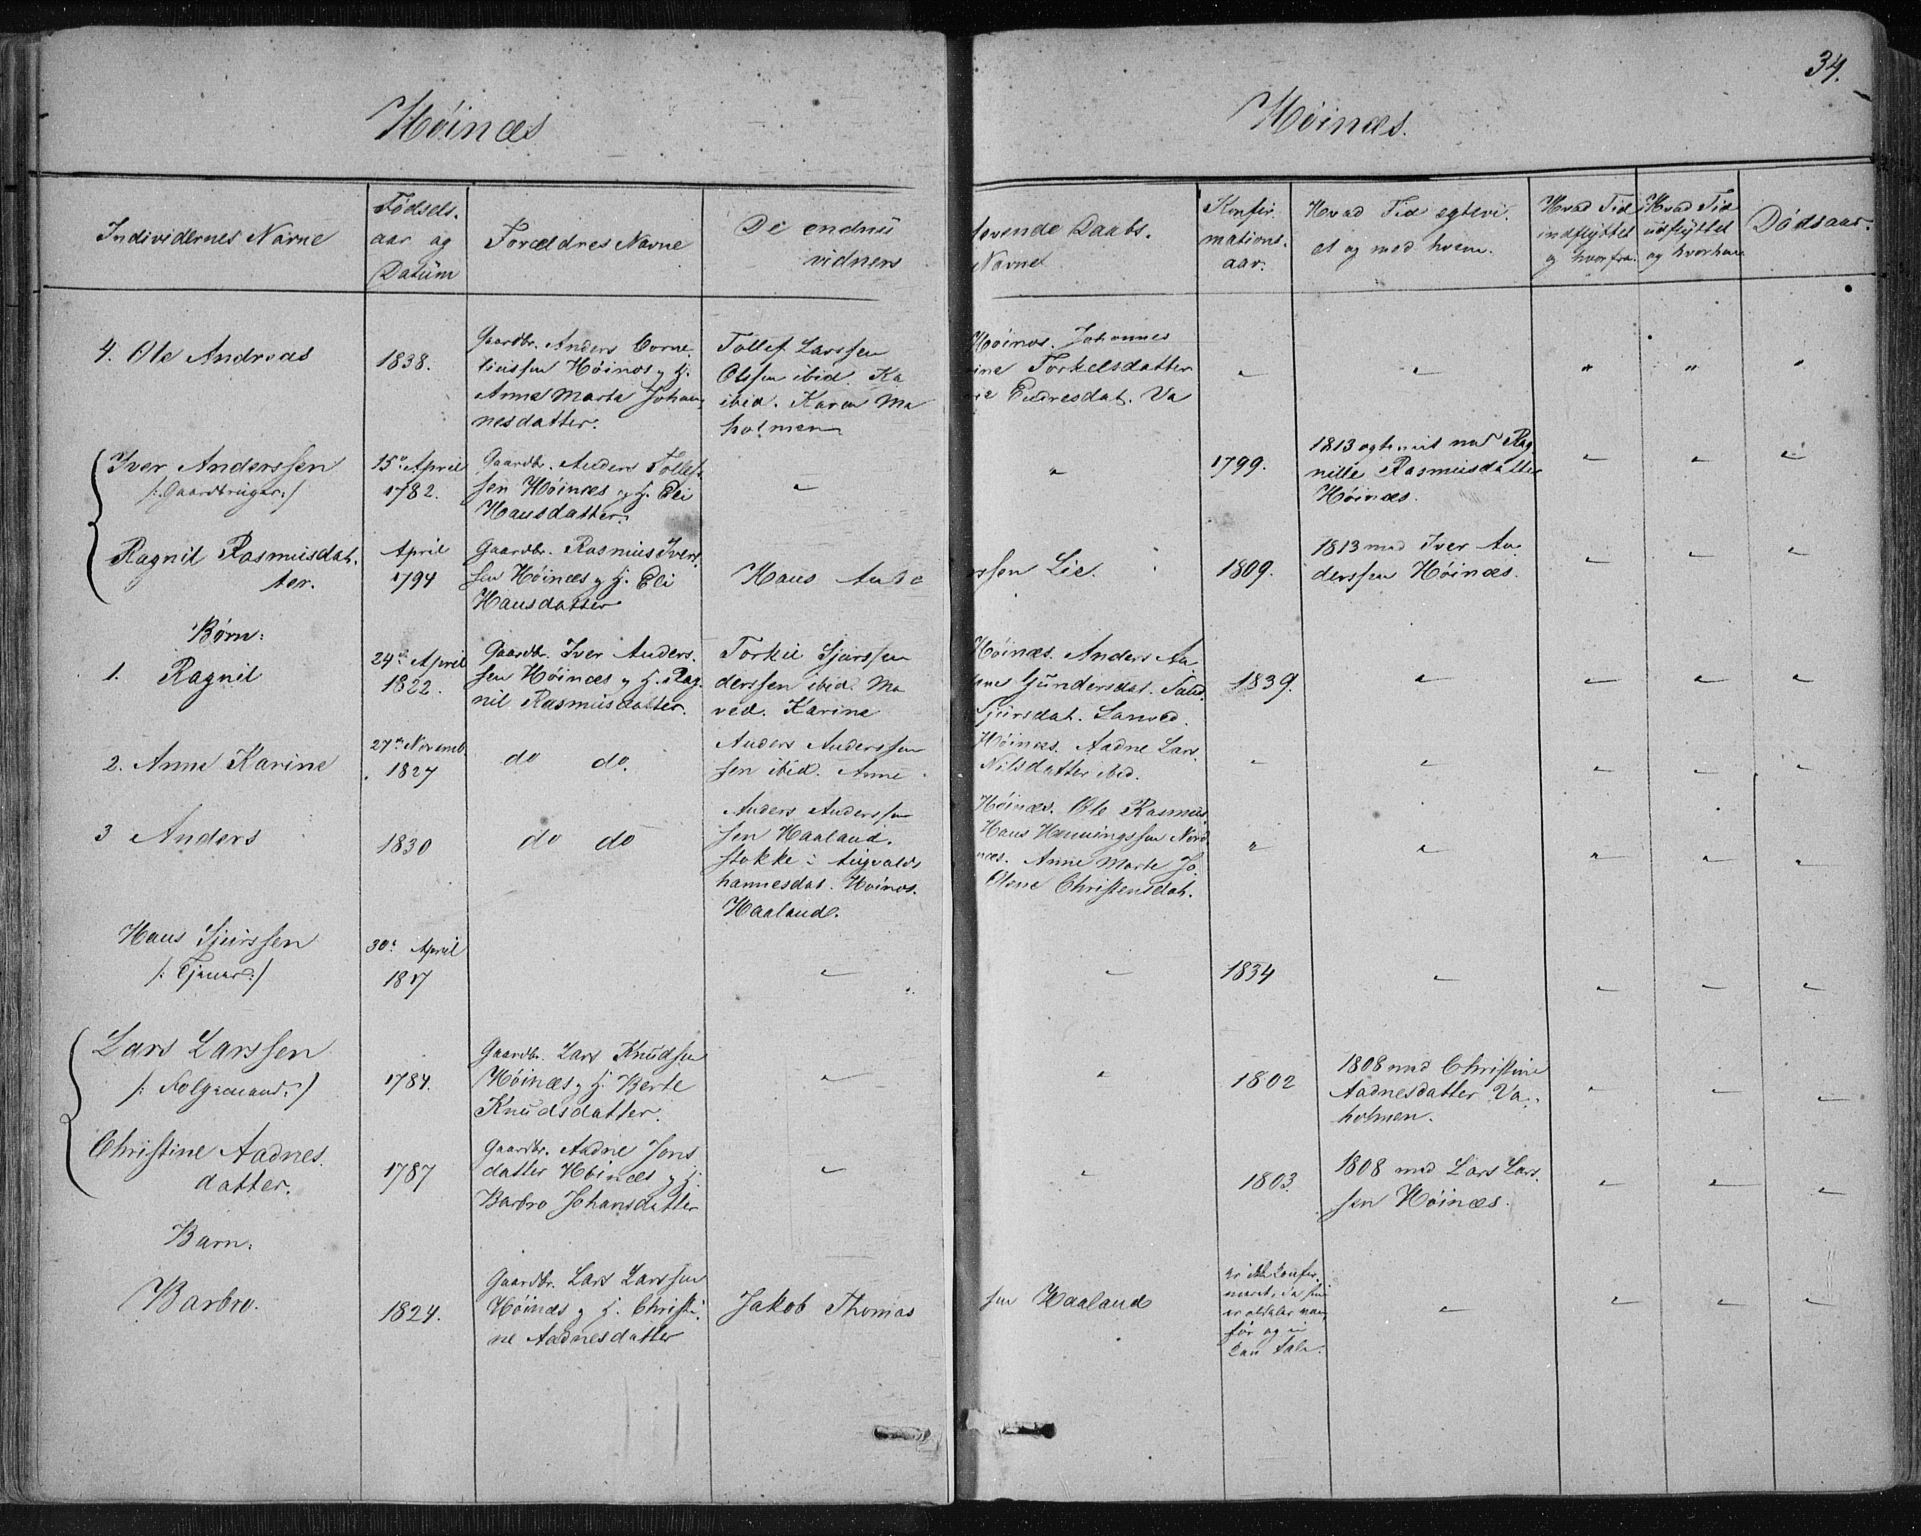 34.
Høinæs
Høinæs.
Individernes Navne
Fødsels-
aar og
Datüm
Forældres Navne
De endnü
vidners
levende Daabs-
Navne
Konfir-
mations-
aar.
Hvad Tid egtevi-
et og med hvem.
Hvad Tid
indflyttet
og hvorfra.
Hvad Tid
udflyttet
og hvorhen
Dødsaar.
4. Ole Andreas
1838.
Gaardbr. Anders Corne-
liussen Høinæs og H.
Anne Marte Johan-
nesdatter.
Tollef Larssen
Olsen ibid. Ka
ibid. Karen Ma
holmen
Høinæs. Johannes
ine Torkelsdatter
ie Endresdat. Va
Iver Anderssen
/: Gaardbruger :/
15de April
1782.
Gaardbr. Anders Tollef-
sen Høinæs og H. Eli
Hansdatter.
1799.
1813 egteviet med Rag-
nille Rasmusdatter
Høinæs.
Ragnil Rasmusdat-
ter.
April
1794
Gaardbr. Rasmus Ivers-
sen Høinæs og H. Eli
Hansdatter
Hans Ande
rssen Lie.
1809.
1813 med Iver An-
derssen Høinæs.
Børn:
1. Ragnil
24de April
1822.
Gaardbr. Iver Anders-
sen Høinæs og H. Rag-
nil Rasmusdatter.
Torkil Sjurssen
derssen ibid. Ma
ved. Karine
Høinæs. Anders An-
Gündersdat. Sand-
Sjürsdat. Sanved.
1839.
2. Anne Karine
27de Novemb.
1827
do do.
Anders Anderssen
sen ibid. Anne
Høinæs. Aadne Lars-
Nilsdatter ibid.
3 Anders
1830
do do
Anders Anderssen
sen Haaland.
stokke i Augvalds
hannesdat. Høinæs.
Haaland.
Høinæs. Ole Rasmus-
Hans Henningssen Nord-
næs. Anne Marte Jo-
Olene Christensdat.
Hans Sjurssen
/: Tjener :/
30de April
1817
1834
Lars Larssen
/: Folgemand :/
1784.
Gaardbr. Lars Knudsen
Høinæs og H. Berte
Knudsdatter.
1802
1808 med Christine
Aadnesdatter Va-
holmen.
Christine Aadnes-
datter.
1787
Gaardbr. Aadne Jons
datter Høinæs og H.
Barbro Johansdatter
1803
1808 med Lars Lars-
sen Høinæs.
Barn:
Barbro.
1824.
Gaardbr. Lars Larssen
Høinæs og H. Christi-
ne Aadnesdatter
Jakob Thomas
sen Haaland
Er ikke konfir-
meret, da hun
er aldeles van-
før og ei
kan tale.